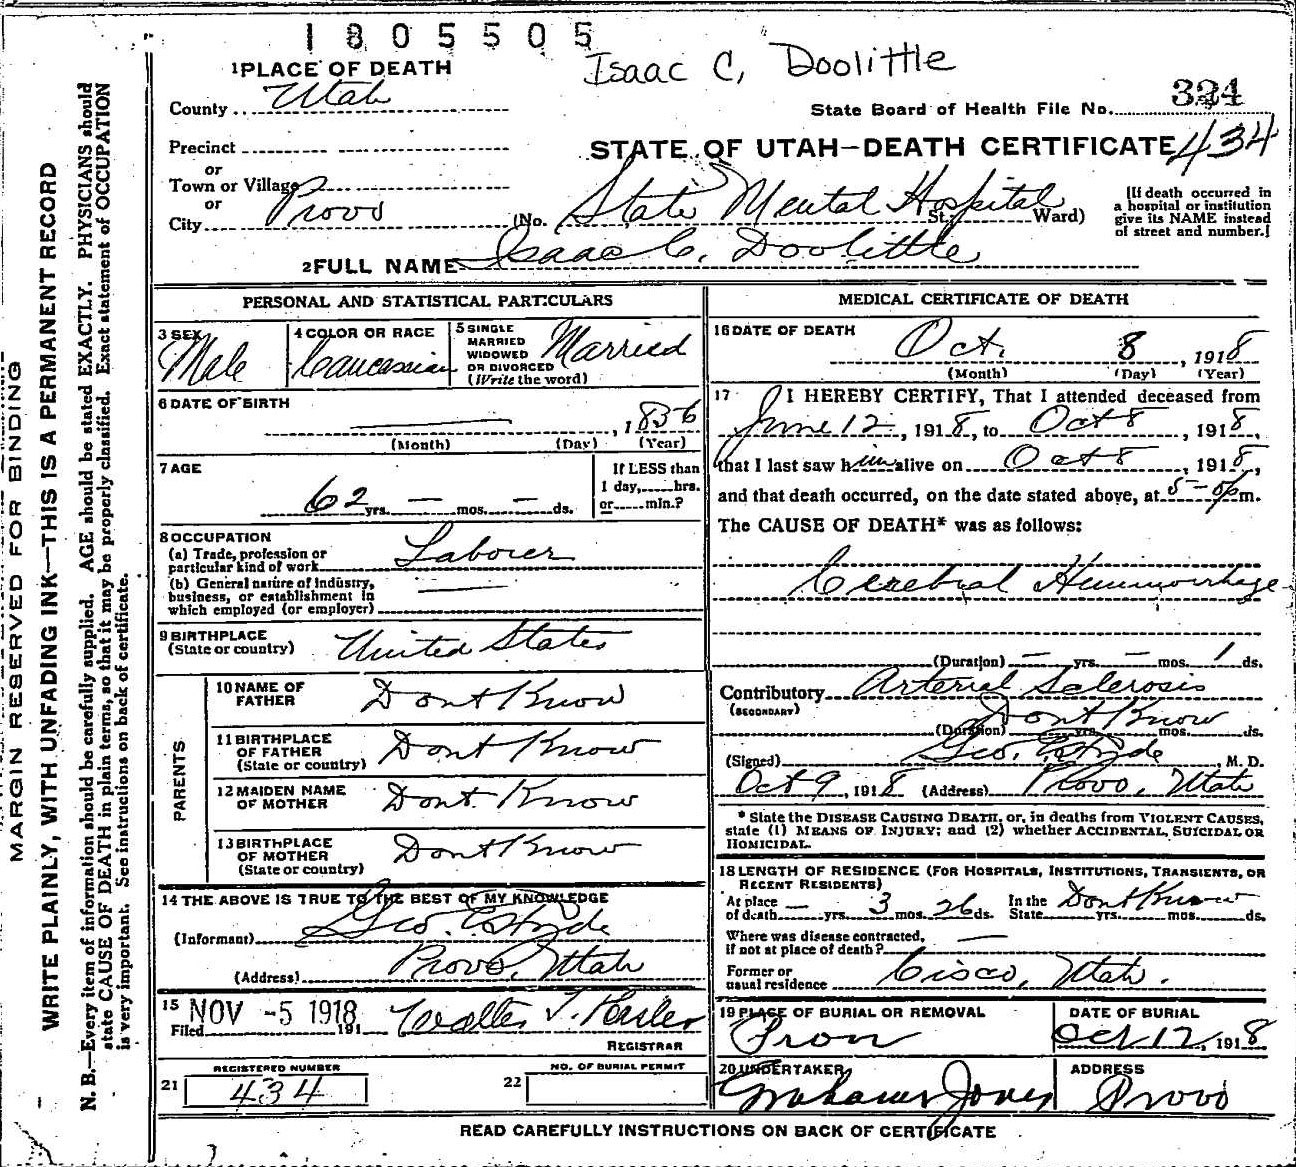 1805505
Isaac C. Doolittle
1 PLACE OF DEATH
County Utah
State Board of Health File No. 324
Precinct
STATE OF UTAH—DEATH CERTIFICATE 434
or
Town or Village
or
City Provo (No. State Mental Hospital St. Ward)
[If death occurred in
a hospital or institution
give its NAME instead
of street and number.]
2 FULL NAME Isaac C. Doolittle
PERSONAL AND STATISTICAL PARTICULARS
3 SEX Male
4 COLOR OR RACE Caucassian
5 SINGLE
MARRIED
WIDOWED
OR DIVORCED
(Write the word) Married
6 DATE OF BIRTH
— , 1836
(Month) (Day) (Year)
7 AGE
62 yrs. — mos. — ds.
If LESS than
1 day,......hrs.
or......min.?
8 OCCUPATION
(a) Trade, profession or
particular kind of work Laborer
(b) General nature of industry,
business, or establishment in
which employed (or employer) —
9 BIRTHPLACE
(State or country) United States
PARENTS
10 NAME OF
FATHER Dont Know
11 BIRTHPLACE
OF FATHER
(State or country) Dont Know
12 MAIDEN NAME
OF MOTHER Dont Know
13 BIRTHPLACE
OF MOTHER
(State or country) Dont Know
14 THE ABOVE IS TRUE TO THE BEST OF MY KNOWLEDGE
(Informant) Geo. E Hyde
(Address) Provo, Utah
15 NOV -5 1918
Filed 191 Walter T.
REGISTRAR
REGISTERED NUMBER
21 434
NO. OF BURIAL PERMIT
22
MEDICAL CERTIFICATE OF DEATH
16 DATE OF DEATH
Oct. 8, 1918
(Month) (Day) (Year)
17 I HEREBY CERTIFY, That I attended deceased from
June 12, 1918, to Oct 8, 1918,
that I last saw him alive on Oct 8, 1918,
and that death occurred, on the date stated above, at 5- p m.
The CAUSE OF DEATH* was as follows:
Cerebral Hemmorrhage
(Duration) — yrs. — mos. 1 ds.
Contributory Arterial Sclerosis
(SECONDARY) Dont Know
(Duration) yrs. mos. ds.
(Signed) Geo. E Hyde, M. D.
Oct 9, 1918 (Address) Provo, Utah
* State the DISEASE CAUSING DEATH, or, in deaths from VIOLENT CAUSES,
state (1) MEANS OF INJURY; and (2) whether ACCIDENTAL, SUICIDAL OR
HOMICIDAL.
18 LENGTH OF RESIDENCE (FOR HOSPITALS, INSTITUTIONS, TRANSIENTS, OR
RECENT RESIDENTS)
At place
of death — yrs. 3 mos. 26 ds. In the
State Dont Know yrs. mos. ds.
Where was disease contracted,
if not at place of death? —
Former or
usual residence Cisco, Utah.
19 PLACE OF BURIAL OR REMOVAL
Provo
DATE OF BURIAL
Oct 12, 1918
20 UNDERTAKER
Jones
ADDRESS
Provo
READ CAREFULLY INSTRUCTIONS ON BACK OF CERTIFICATE
MARGIN RESERVED FOR BINDING
WRITE PLAINLY, WITH UNFADING INK—THIS IS A PERMANENT RECORD
N. B.—Every item of information should be carefully supplied. AGE should be stated EXACTLY. PHYSICIANS should
state CAUSE OF DEATH in plain terms, so that it may be properly classified. Exact statement of OCCUPATION
is very important. See instructions on back of certificate.